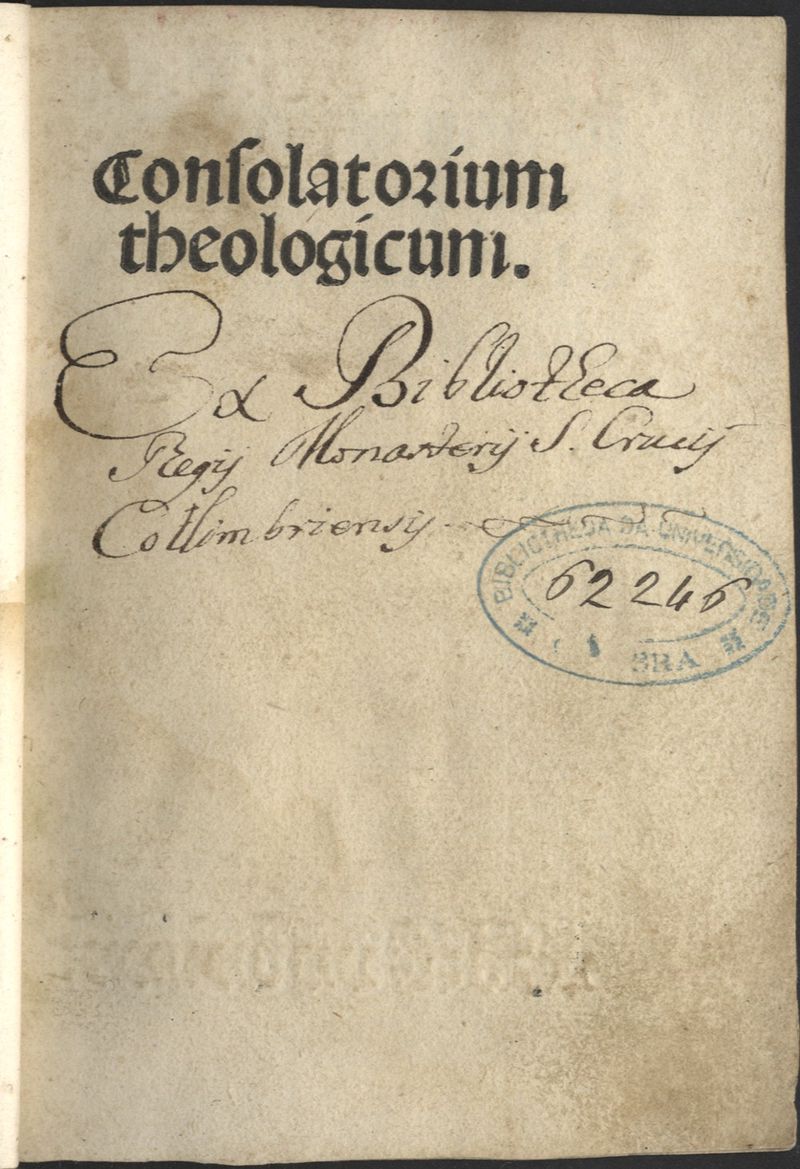 Conſolatorium
theologicum.
Ex Bibliotheca
Regij Monasterij S. Crucij
Collimbriensij
BIBLIOTHECA DA UNIVERSIDADE
62246
BRA